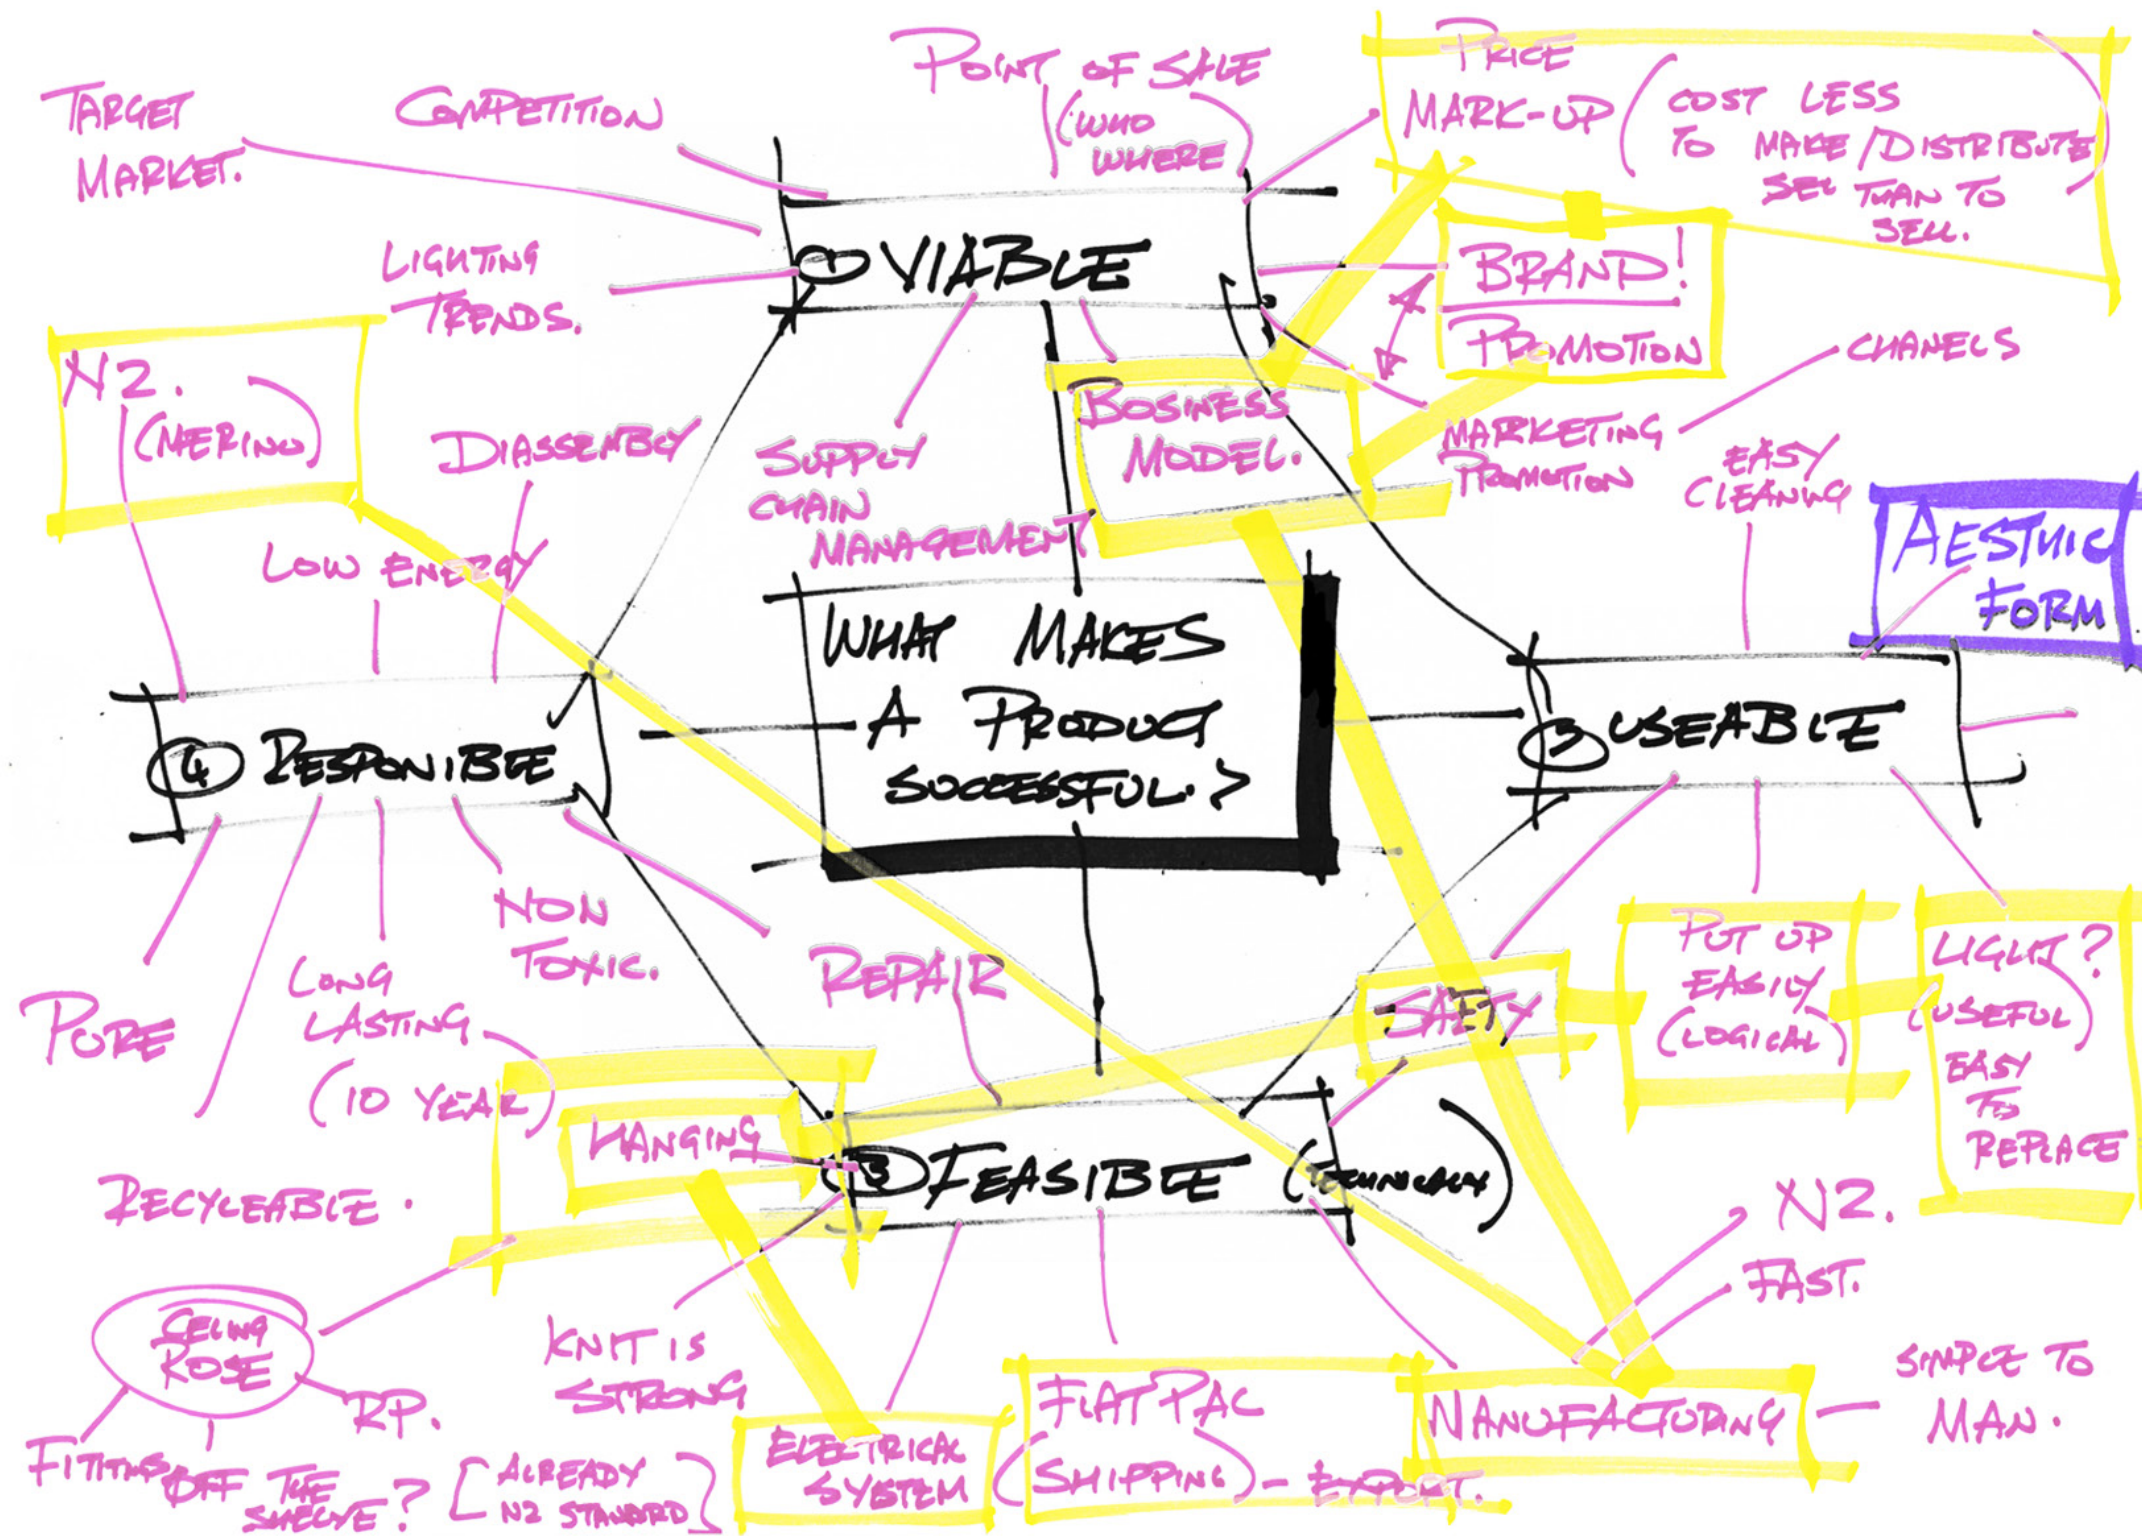 TARGET
MARKET.
COMPETITION
POINT OF SALE
(WHO
WHERE)
PRICE
MARK-UP
(COST LESS
TO MAKE/DISTRIBUTE
SEL THAN TO
SELL.)
LIGHTING
TRENDS.
① VIABLE
BRAND!
PROMOTION
CHANELS
MARKETING
PROMOTION
BUSINESS
MODEL.
SUPPLY
CHAIN
MANAGEMENT
NZ.
(MERINO)
DIASSEMBLY
LOW ENERGY
EASY
CLEANING
AESTHIC
FORM
WHAT MAKES
A PRODUCT
SUCCESSFUL?
④ RESPONIBLE
USEABLE
PURE
LONG
LASTING
(10 YEAR)
NON
TOXIC.
REPAIR
RECYCLEABLE.
SAFTY
PUT UP
EASILY
(LOGICAL)
LIGHT?
(USEFUL)
EASY
TO
REPLACE
HANGING
FEASIBLE (TECHNICALY)
NZ.
FAST.
CELING
ROSE
RP.
FITTINGS
OFF THE
SHELVE?
[ALREADY
NZ STANDARD]
KNIT IS
STRONG
ELECTRICAL
SYSTEM
FLAT PAC
(SHIPPING) - EXPORT.
MANUFACTURING
SIMPLE TO
MAN.